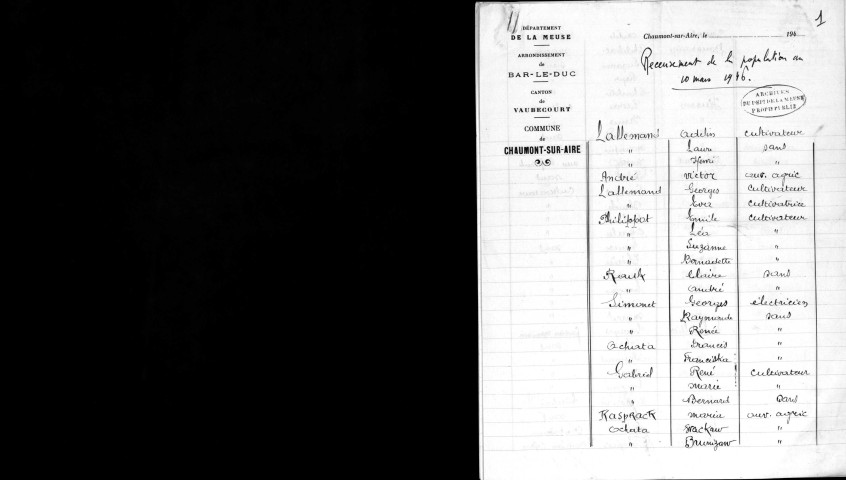 DÉPARTEMENT
DE LA MEUSE
ARRONDISSEMENT
de
BAR-LE-DUC
CANTON
de
VAUBECOURT
COMMUNE
de
CHAUMONT-SUR-AIRE
1
Chaumont-sur-Aire, le 194
Recensement de la population au
10 mars 1946.
ARCHIVES
DE LA MEUSE
Lallemand Adelin cultivateur
" Laure sans
" Henri "
André Victor ouv. agric
Lallemand Georges cultivateur
" Eva cultivatrice
Philippot Emile cultivateur
" Léa "
" Suzanne "
" Bernadette "
Claire sans
" André "
Simonet Georges électricien
" Raymonde sans
" Renée "
Ochata Francis "
" Franciska "
Gabriel René cultivateur
" Marie "
" Bernard sans
Kasprack Marie ouv. agric
Ochata "
" "